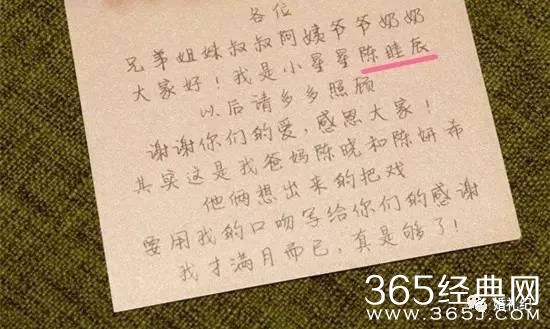 各位
兄弟姐妹叔叔阿姨爷爷奶奶
大家好！我是小星星陈睦辰
以后请多多照顾
谢谢你们的爱，感恩大家！
其实这是我爸妈陈晓和陈妍希
他俩想出来的把戏
要用我的口吻写给你们的感谢
我才满月而已，真是够了！
365经典网
婚礼纪
www.365j.com